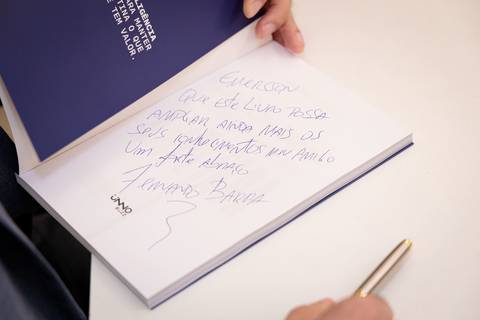 LIGÊNCIA
ARA MANTER
TINA O QUE
E TEM VALOR.
EMERSON
QUE ESTE LIVRO POSSA
AMPLIAR AINDA MAIS OS
SEUS CONHECIMENTOS MEU AMIGO
UM FORTE ABRAÇO
FERNANDO BARRA
ÜNNO